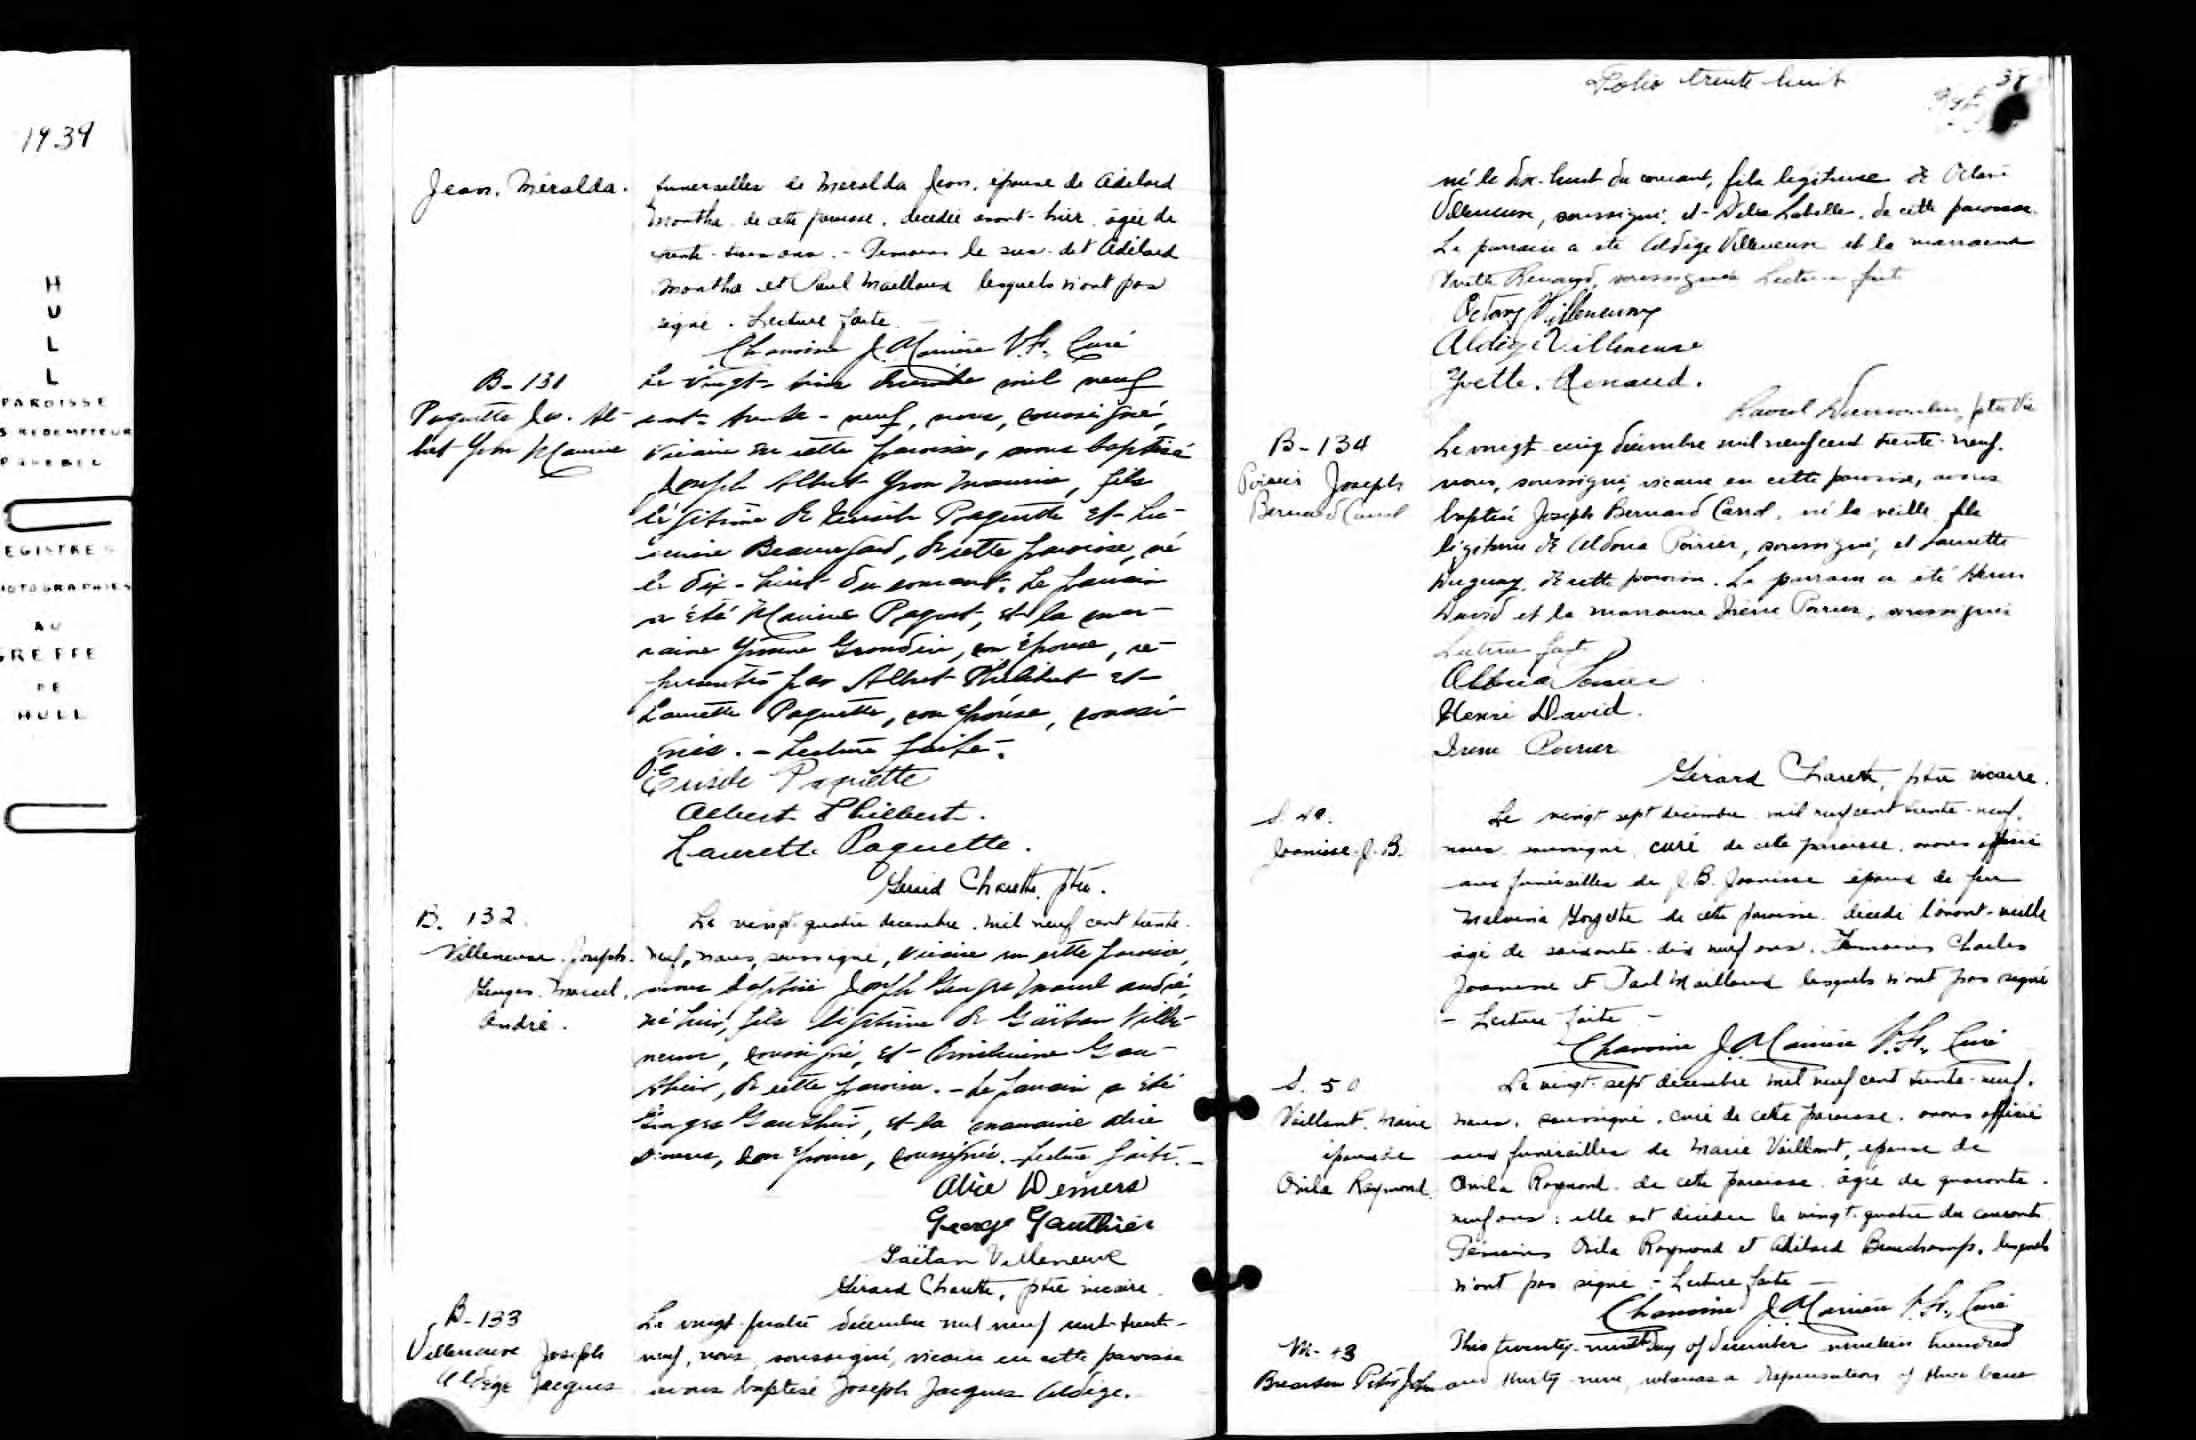 1939
HULL
PAROISSE
REDEMPTEUR
QUEBEC
REGISTRES
PHOTOGRAPHIES
AU
GREFFE
DE
HULL
Jean, Méralda.
funérailles de Méralda Jean, épouse de Adélard
de cette paroisse, décédée avant-hier, âgée de
trois ans. - Témoins le sus-dit Adélard
et Paul Mailloux lesquels n'ont pas
signé. Lecture faite.
Chanoine J. A. Carrière V.F., Curé
B-131
Paquette Jos. Al-
bert Yvon Maurice
Le vingt-trois décembre mil neuf
cent-trente-neuf, nous, soussigné,
vicaire en cette paroisse, avons baptisé
Joseph Albert Yvon Maurice, fils
légitime de Paquette et Lu-
cienne Beauregard, de cette paroisse, né
le dix-huit du courant. Le parrain
a été Maurice Paquet, et la mar-
raine Yvonne Grondin, son épouse, re-
présentés par Albert Philibert et
Laurette Paquette, son épouse, soussi-
gnés. - Lecture faite.
Paquette
Albert Philbert.
Laurette Paquette.
Gérard Charette, ptre.
B. 132.
Villeneuve Joseph-
Georges Marcel,
André.
Le vingt-quatre décembre mil neuf cent trente-
neuf, nous, soussigné, vicaire en cette paroisse,
avons baptisé Joseph Georges Marcel André,
né hier, fils légitime de Gaëtan Ville-
neuve, soussigné, et Emilienne Gau-
thier, de cette paroisse. - Le parrain a été
Georges Gauthier, et la marraine Alice
Demers, son épouse, soussignés. - Lecture faite. -
Alice Demers
George Gauthier
Gaëtan Villeneuve
Gérard Charette, ptre vicaire.
B-133
Villeneuve Joseph
Aldège Jacques
Le vingt-quatre décembre mil neuf cent-trente-
neuf, nous, soussigné, vicaire en cette paroisse
avons baptisé Joseph Jacques Aldège,
Folio trente-huit
38
né le dix-huit du courant, fils légitime de Octave
Villeneuve, soussigné, et Délia Labelle, de cette paroisse.
Le parrain a été Aldège Villeneuve et la marraine
Yvette Renaud, soussignés Lecture faite
Villeneuve
Aldège Villeneuve
Yvette. Renaud.
ptre Vic
B-134
Poirier Joseph
Bernard Carrol
Le vingt-cinq décembre mil neuf cent trente-neuf,
nous, soussigné, vicaire en cette paroisse, avons
baptisé Joseph Bernard Carrol, né la veille, fils
légitime de Aldona Poirier, soussigné, et Laurette
Duguay, de cette paroisse. Le parrain a été Henri
David et la marraine Irène Poirier, soussignés
Lecture faite
Poirier
Henri David.
Irene Poirier
Gérard Charette, ptre vicaire.
S. 49.
Joanisse J. B.
Le vingt sept décembre mil neuf cent trente-neuf,
nous soussigné, curé de cette paroisse, avons officié
aux funérailles de J. B. Joanisse époux de feu
Melvina de cette paroisse, décédé l'avant-veille
âgé de soixante-dix neuf ans. Témoins Charles
Joanisse et Paul Mailloux lesquels n'ont pas signé
- Lecture faite -
Chanoine J. A. Carrière V.F., Curé
S. 50
Vaillant, Marie
épouse de
Onila Raymond.
Le vingt-sept décembre mil neuf cent trente-neuf,
nous, soussigné, curé de cette paroisse, avons officié
aux funérailles de Marie Vaillant, épouse de
Onila Raymond de cette paroisse, âgée de quarante-
neuf ans: elle est décédée le vingt-quatre du courant.
Témoins Onila Raymond et Adélard Beauchamp, lesquels
n'ont pas signé - Lecture faite -
Chanoine J. A. Carrière V.F., Curé
M-43
Peter John
This twenty-ninth day of December nineteen hundred
and thirty-nine, whereas a dispensation of three bans